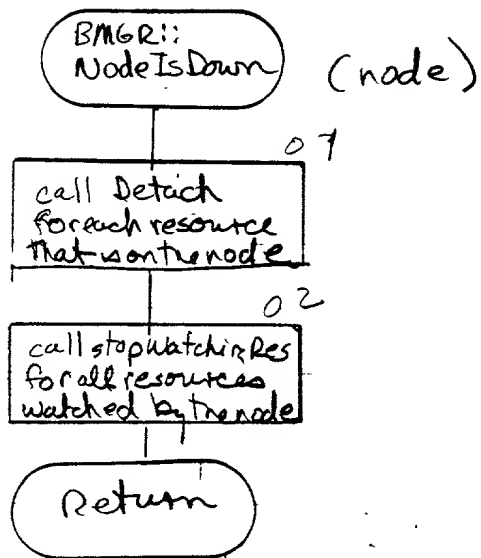 BMGR::
NodeIsDown
(node)
01
call Detach
foreach resource
that is on the node
02
call stopWatchingRes
for all resources
watched by the node
Return